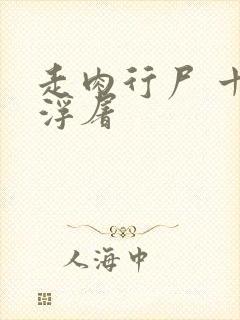 走肉行尸 十
浮屠
人海中